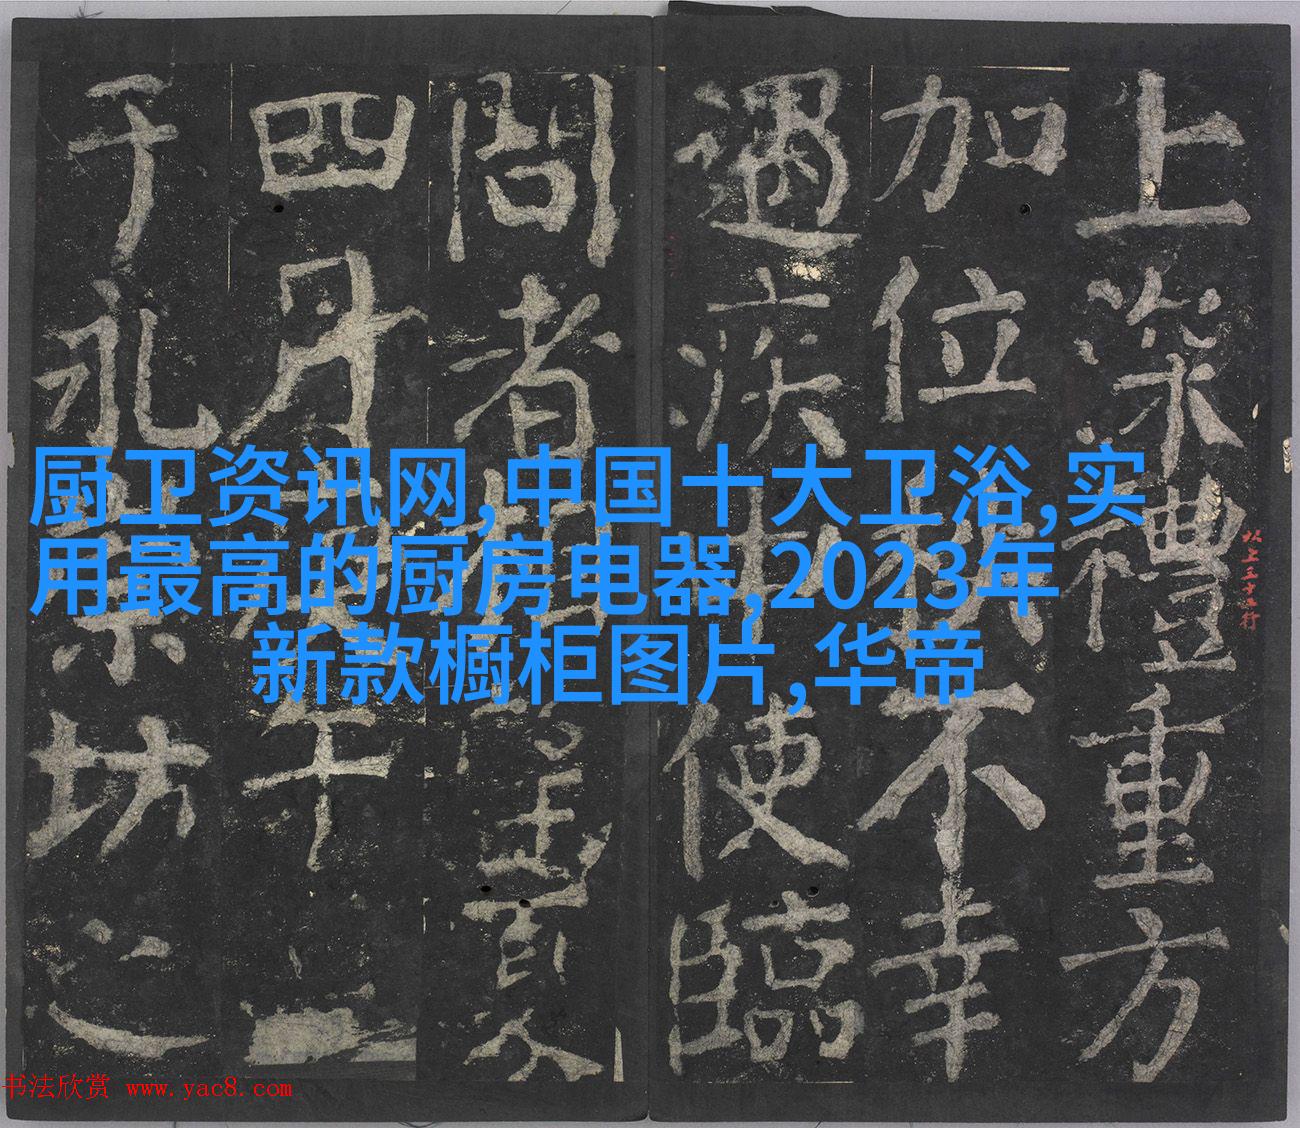 上深禮重方
加位不幸
遇疾使臨
問者望夏
四月午
于永崇坊之
厨卫资讯网,中国十大卫浴,实
用最高的厨房电器,2023年
新款橱柜图片,华帝
书法欣赏 www.yac8.com